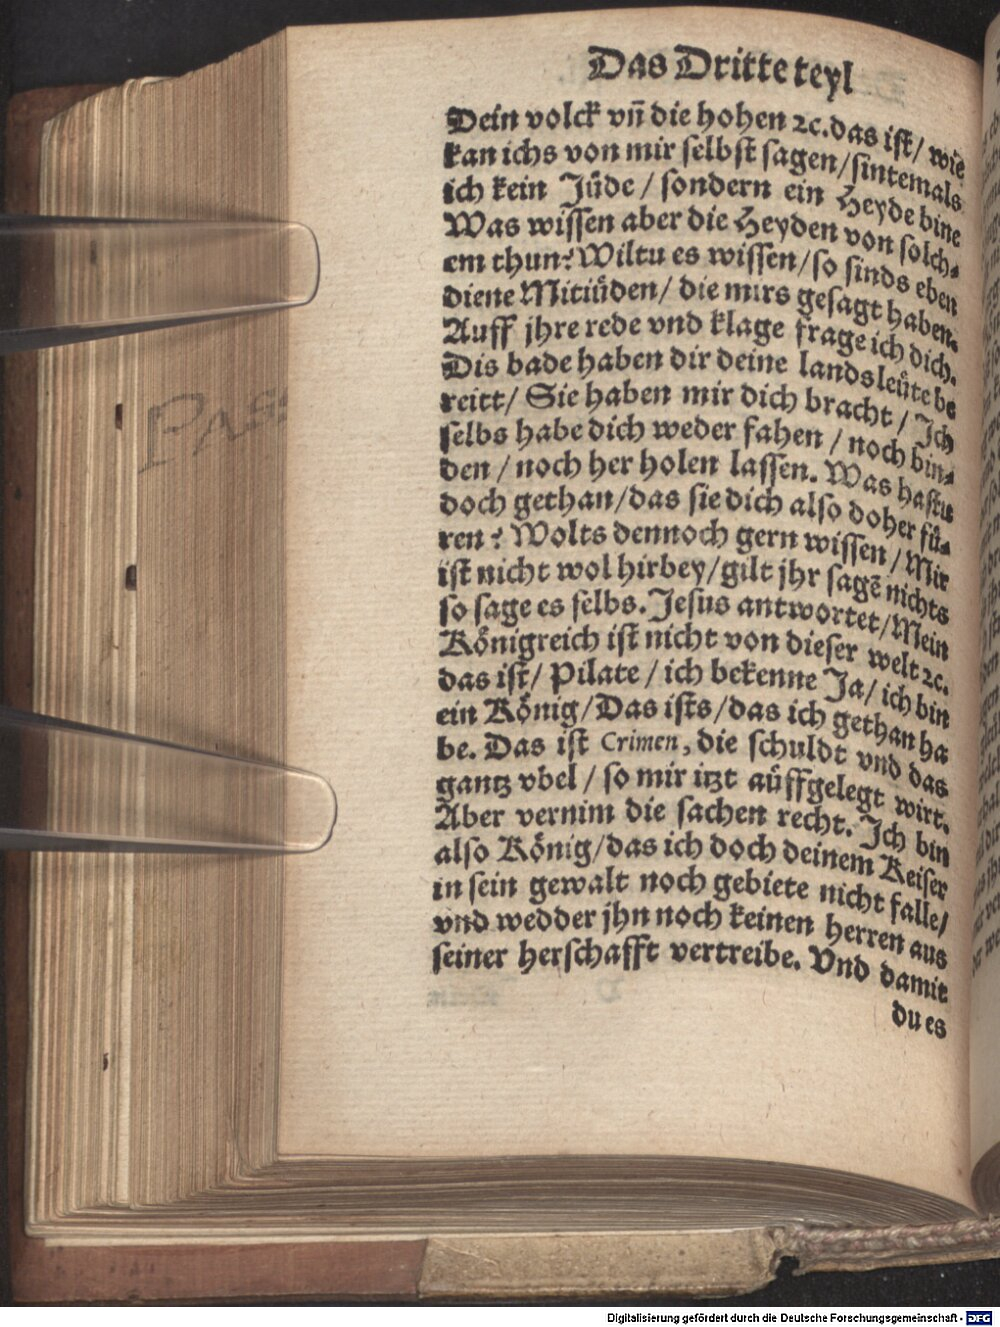 Das Dritte teyl
Dein volck vñ die hohen ꝛc. das ist/ wie
kan ichs von mir selbst sagen/sintemals
ich kein Jüde / sondern ein Heyde bine
Was wissen aber die Heyden von solch⸗
em thun? Wiltu es wissen/so sinds eben
diene Mitiüden/ die mirs gesagt haben.
Auff jhre rede vnd klage frage ich dich.
Dis bade haben dir deine landsleüte be
reitt/ Sie haben mir dich bracht / Ich
selbs habe dich weder fahen / noch bin⸗
den / noch her holen lassen. Was hastu
doch gethan/das sie dich also doher fü⸗
ren? Wolts dennoch gern wissen/ Mir
ist nicht wol hirbey/gilt jhr sagē nichts
so sage es selbs. Jesus antwortet/Mein
Königreich ist nicht von dieser welt ꝛc.
das ist/ Pilate / ich bekenne Ja/ ich bin
ein König/Das ists/das ich gethan ha
be. Das ist Crimen, die schuldt vnd das
gantz vbel / so mir itzt aüffgelegt wirt.
Aber vernim die sachen recht. Ich bin
also König/das ich doch deinem Keiser
in sein gewalt noch gebiete nicht falle/
vnd wedder jhn noch keinen herren aus
seiner herschafft vertreibe. Vnd damit
du es
PASS
Digitalisierung gefördert durch die Deutsche Forschungsgemeinschaft - DFG